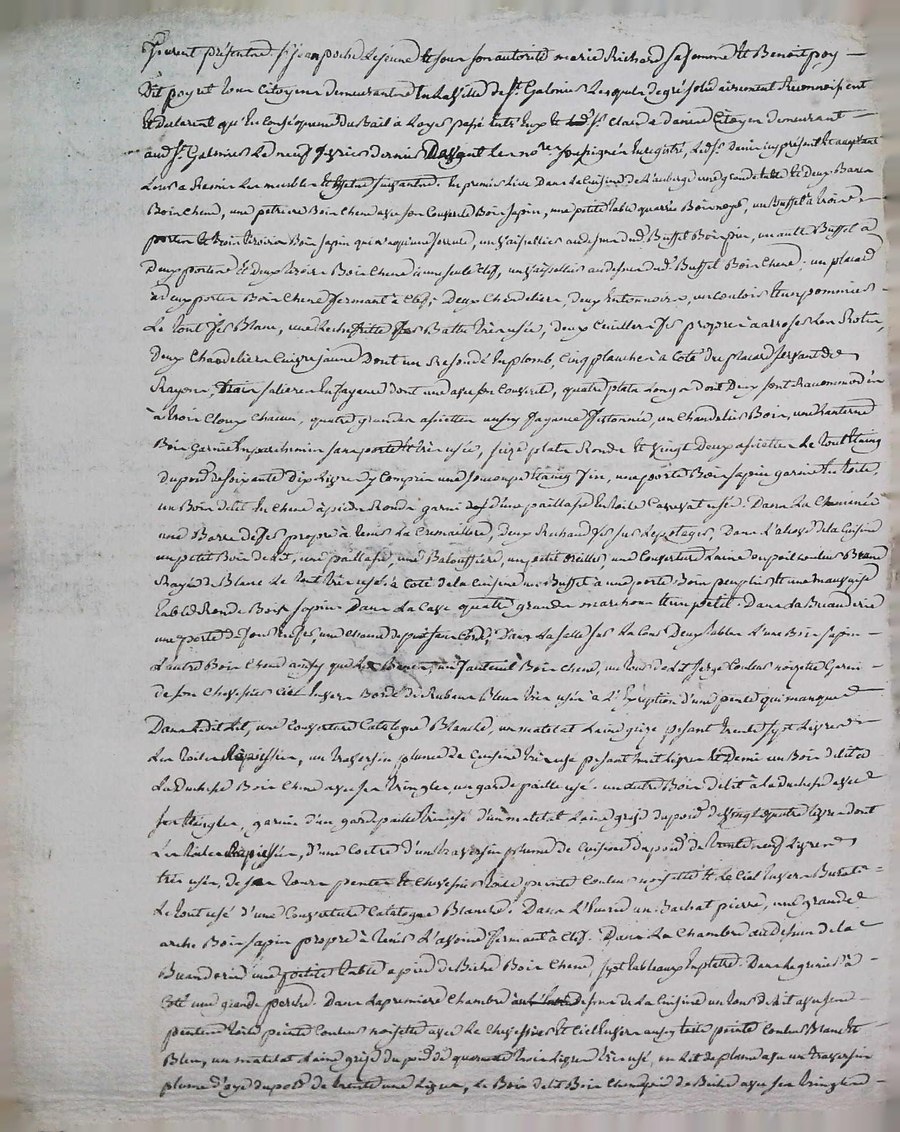 furent présents Sr Jean poche Lejeune & sous son autorité marie Richard sa femme & Benoit poy —
Dit poyet tous Citoyens demeurants En la Ville de St. Galmier Lesquels de gré solidairement Reconnoissent
Et declarent qu'En Conséquence du Bail à Loyer passé Entr'Eux & Led. Sr. Claude danier Citoyen demeurant —
aud. St. Galmier Le neuf fevrier dernier Devant Le nore. soussigné Enregistré, Led. Sr. Danier icy présent & acceptant
Leur a Remis Les meubles & Effets suivants. En premier Lieu Dans La Cuisine de L'auberge une grande table & Deux Bancs
Bois Chene, une petriere Bois Chene avec son Couvercle Bois sapin, une petite table quarrée Bois noyer, un Buffet à trois —
portes & trois tiroirs Bois sapin qui n'a qu'une serrure, un Vaisselier au dessus dud. Buffet Bois pin, un autre Buffet à
Deux portes & deux tiroirs Bois Chene à une seule Clef, un Vaisselier au dessus dud. Buffet Bois Chene, un placard
à deux portes Bois Chene fermant à Clef, Deux Chandeliers, deux Entonnoirs, un Couloir & un pommier —
Le tout fer Blanc, une Lechefritte fer Battu très usée, deux Cuilleres fer propres à arroser Les Rotis,
Deux Chandeliers Cuivre jaune Dont un Refondé En plomb, Cinq planches à Coté du placard servant de
Rayons, trois salieres En fayance dont une avec son Couvercle, quatre plats Longs dont Deux sont Racommodés
à trois Cloux Chacun, quatre grandes assiettes aussy fayance, un Chandelier Bois, une Lanterne
Bois garnie En parchemin sans porte & très usée, seize plats Ronds & Vingt Deux assiettes Le tout Etaing
du poids de soixante Dix Livres y Compris une soucoupe Etaing fin, une porte Bois sapin garnie En toile,
un Bois de lit En Chene à pieds Ronds garni d'une paillasse En toile usé. Dans La Cheminée
une Barre de fer propre à tenir La Cremaillere, deux Rechauds fer sur Le potager, Dans L'alcove de la Cuisine
un petit Bois de Lit, une paillasse, une Baloussiere, un petit oreiller, une Couverture Laine ou poil Couleur Brune
Rayée de Blanc Le tout très usé. à Coté de la Cuisine un Buffet à une porte Bois peuplier & une mauvaise
table Ronde Bois sapin. Dans La Cave quatre grandes marchons & un petit. Dans La Buanderie
une porte de four En fer, une Dans La salle sur La Cour Deux tables L'une Bois sapin —
L'autre Bois Chene ainsy que Les Bancs, un fauteuil Bois Chene, un tour de Lit serge Couleur noizette Garni —
de son Chevessier Ciel Envers Bordé de Rubans Bleu très usés à L'Exception d'une pente qui manque
Dans Ledit Lit, une Couverture Catalogne Blanche, un matelat Laine grise pesant trente sept Livres
Les toiles Rapiessées, un traversin plume de Cuisine très usé pesant huit Livres & Demi un Bois de lit à
La Duchesse Bois Chene avec ses tringles, un garde paille usé. un autre Bois de lit à la Duchesse avec
ses tringles, garnie d'un garde paille très usé d'un matelat Laine grise du poids de Vingt quatre Livres dont
Les toiles Rapiessées, d'une Coetre d'un traversin plume de Cuisine du poids de trente neuf Livres
très usés, de son tour pentes & Chevessier toile peinte Couleur noisette & Le Ciel Envers
Le tout usé d'une Couverture Catalogne Blanche. Dans L'Ecurie un Bachat pierre, une grande
arche Bois sapin propre à tenir L'avoine fermant à Clef. Dans La Chambre au dessus de la
Buanderie une petite table à pied de Biche Bois Chene, sept tableaux En platre. Dans Le grenier à —
Coté une grande perche. Dans La premiere Chambre au dessus de La Cuisine un tour de Lit avec ses —
pentes toile peinte Couleur noisette avec Le Chevessier & Ciel Envers aussy toile peinte Couleur Blanc &
Bleu, un matelat Laine grise du poids de quarante trois Livres très usé, un Lit de plume avec un traversin
plume d'oye du poids de trente une Livres, Le Bois de lit Bois Chene pied de Biche avec ses tringles —